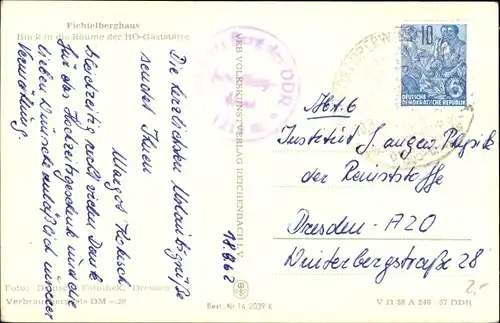 Fichtelberghaus
Blick in die Räume der HO-Gaststätte
Die herzlichsten Urlaubsgrüße
sendet Ihnen
Margot
Gleichzeitig recht vielen Dank
für das Hochzeitsgeschenk und die
lieben Wünsche anläßlich unserer
Vermählung.
18.9.62
VEB VOLKSKUNSTVERLAG REICHENBACH i. V.
der DDR
10
DEUTSCHE
DEMOKRATISCHE REPUBLIK
Abt. 6
Institut f. angew. Physik
der Reinststoffe
Dresden - A20
Winterbergstraße 28
2,-
Foto: Deutsche Fotothek, Dresden
Verbraucherpreis DM -.20
Best.-Nr. 14/2039 K
V 11 28 A 246 57 DDR